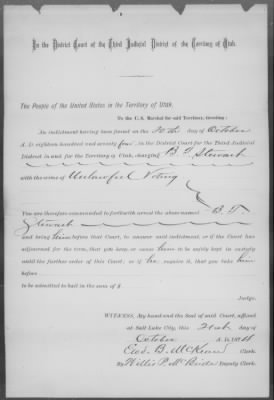 In the District Court of the Third Judicial District of the Territory of Utah.
The People of the United States in the Territory of Utah,
To the U. S. Marshal for said Territory, Greeting:
An indictment having been found on the 20th day of October
A. D. eighteen hundred and seventy four, in the District Court for the Third Judicial
District in and for the Territory of Utah, charging B. T. Stewart
with the crime of Unlawful Voting
You are therefore commanded to forthwith arrest the above named B T
Stewart
and bring him before that Court, to answer said indictment, or if the Court has
adjourned for the term, that you keep, or cause him to be safely kept in custody
until the further order of this Court; or if he require it, that you take him
before
to be admitted to bail in the sum of $
Judge.
WITNESS, My hand and the Seal of said Court, affixed
at Salt Lake City, this 21st day of
October A. D. 1874
Geo. B. McKean Clerk.
By Willis P. McBride Deputy Clerk.